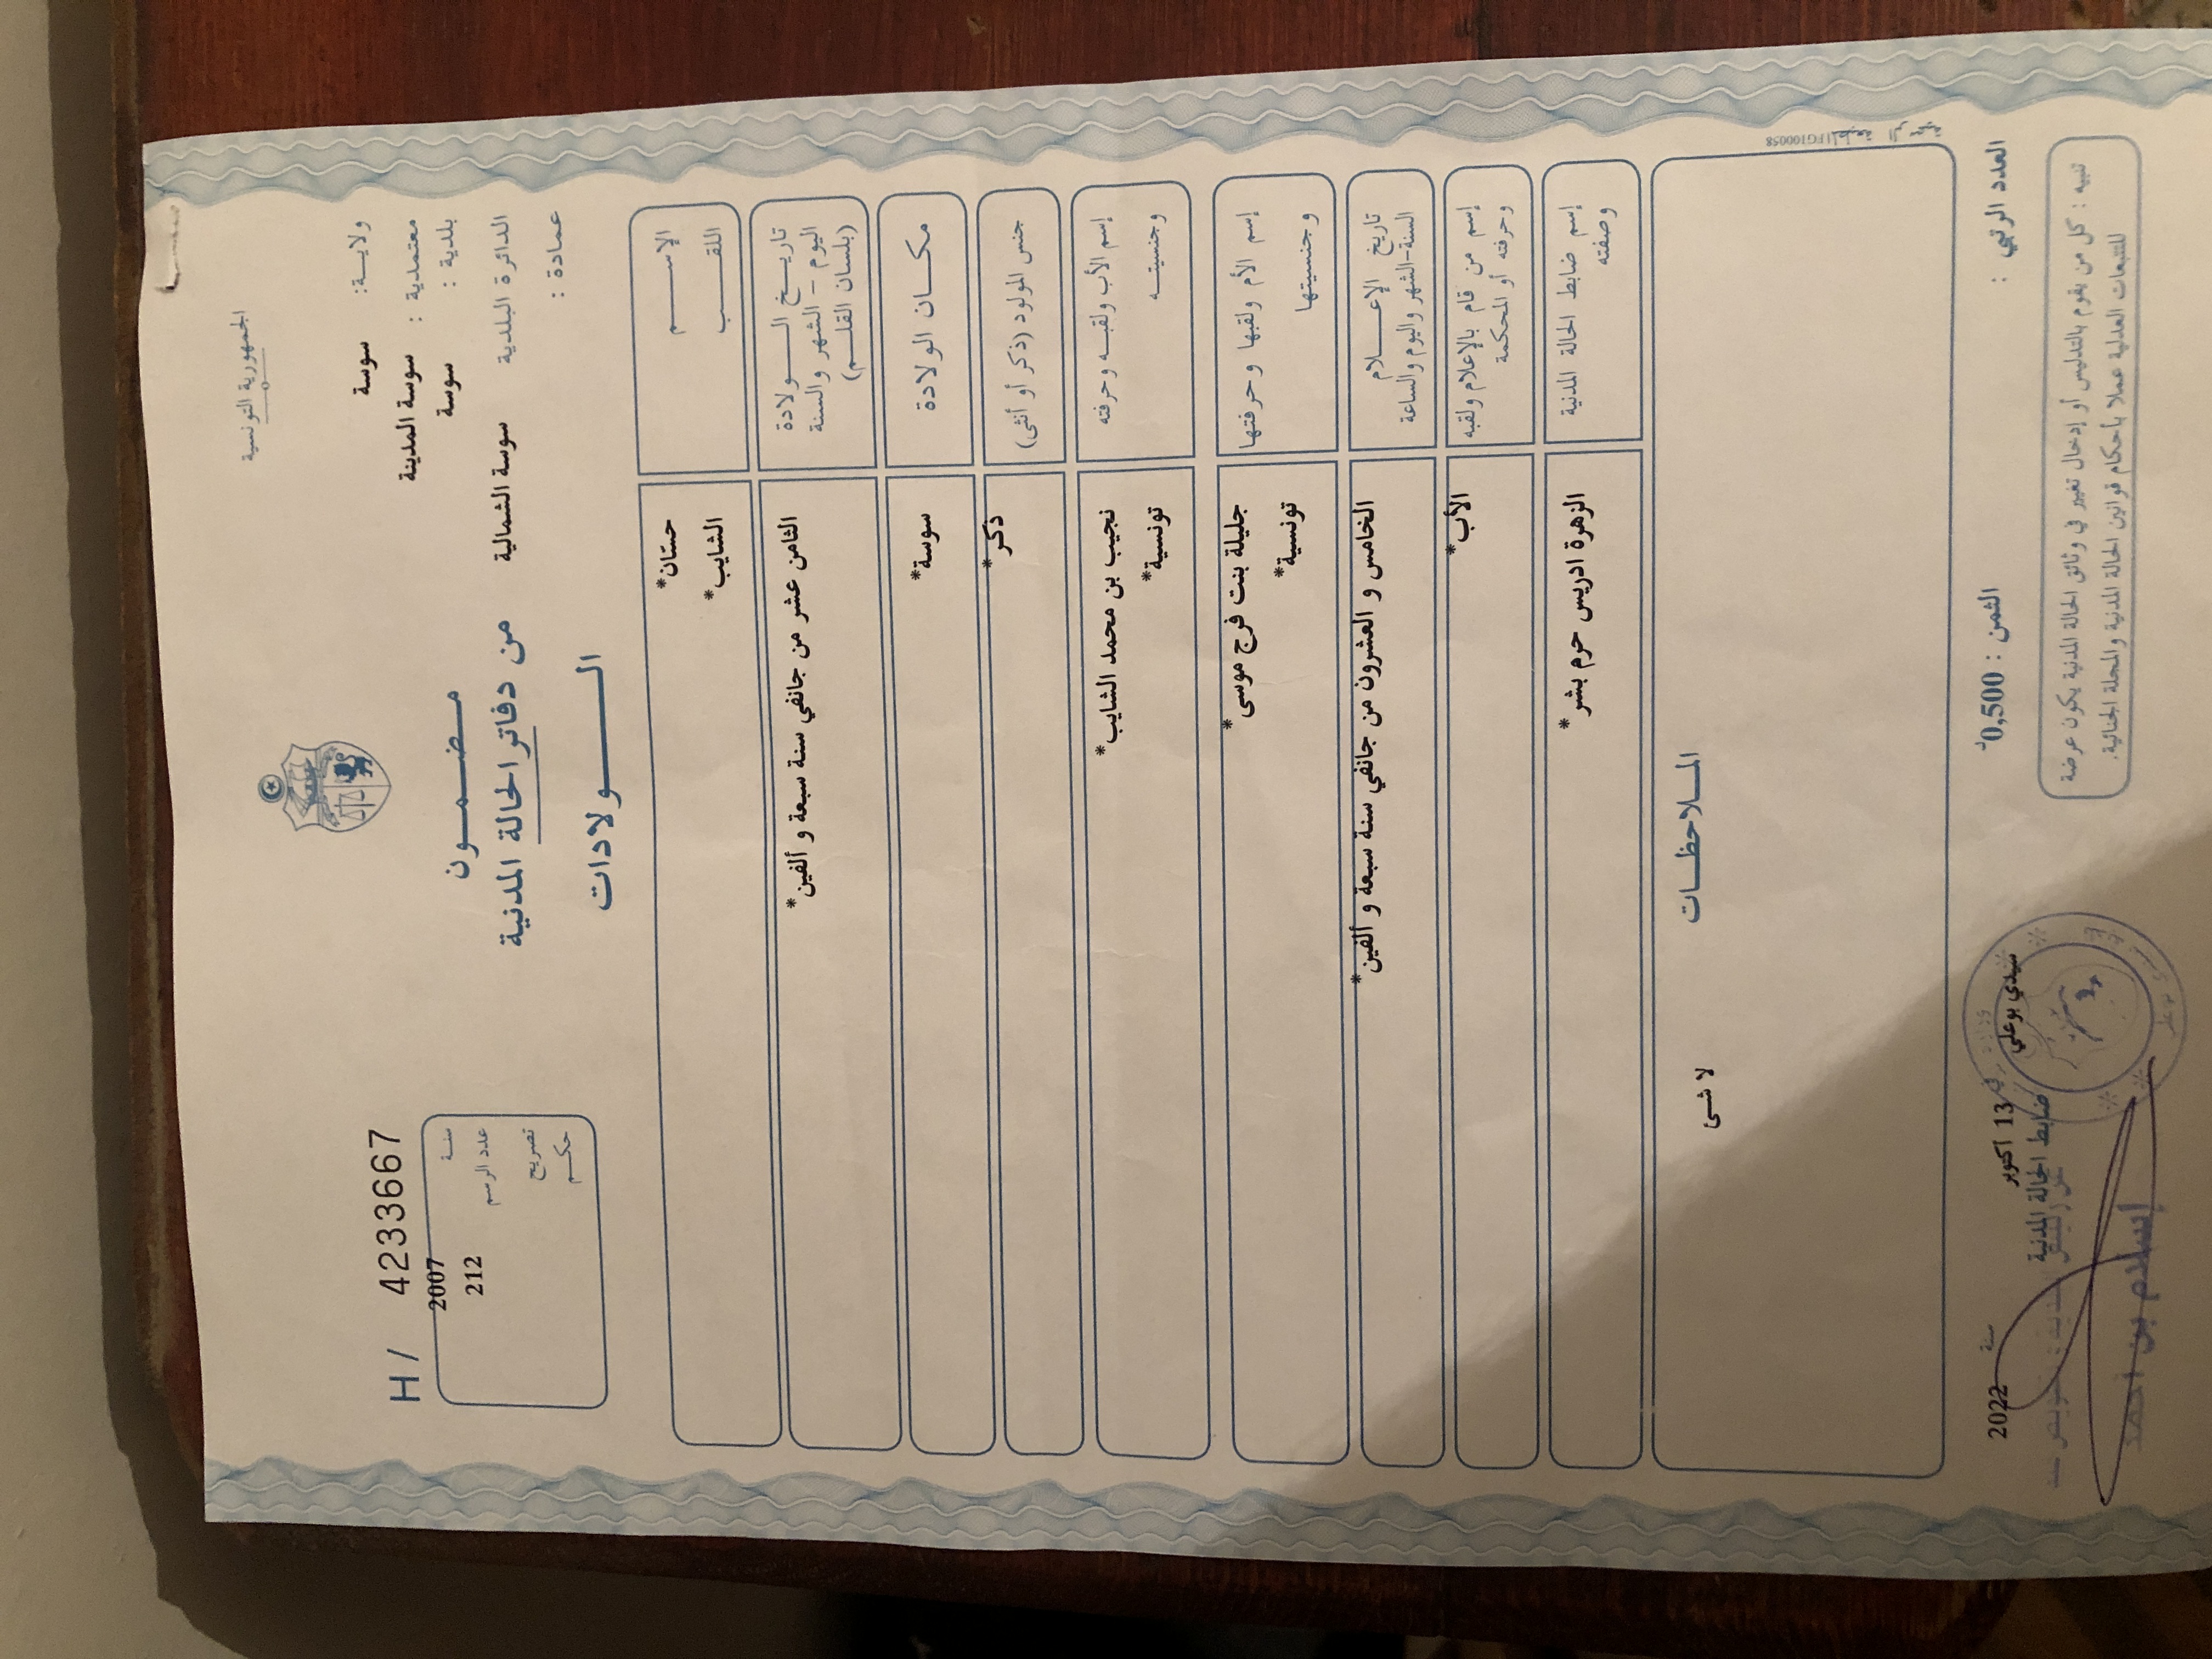 الجمهورية التونسية
ولاية: سوسة
معتمدية : سوسة المدينة
بلدية : سوسة
الدائرة البلدية سوسة الشمالية
عمادة :
مضمون
من دفاتر الحالة المدنية
الولادات
H / 4233667
سنة 2007
عدد الرسم 212
تصريح
حكم
الإسم حسّان*
اللقب الشايب*
تاريخ الولادة
اليوم - الشهر والسنة
(بلسان القلم)
الثامن عشر من جانفي سنة سبعة و ألفين*
مكان الولادة سوسة*
جنس المولود (ذكر أو أنثى) ذكر*
إسم الأب ولقبه وحرفته نجيب بن محمد الشايب*
وجنسيته تونسية*
إسم الأم ولقبها وحرفتها جليلة بنت فرج موسى*
وجنسيتها تونسية*
تاريخ الإعلام
السنة-الشهر واليوم والساعة
الخامس و العشرون من جانفي سنة سبعة و ألفين*
إسم من قام بالإعلام ولقبه الأب*
وحرفته أو المحكمة
إسم ضابط الحالة المدنية الزهرة ادريس حرم بشر*
وصفته
1FG100058
الملاحظات
لا شئ
العدد الرتبي :
الثمن : 0,500د
سيدي بوعلي في 13 اكتوبر سنة 2022
ضابط الحالة المدنية
إسلام بن احمد
تنبيه : كل من يقوم بالتدليس أو إدخال تغيير في وثائق الحالة المدنية يكون عرضة
للتتبعات العدلية عملا بأحكام قوانين الحالة المدنية والمجلة الجنائية.